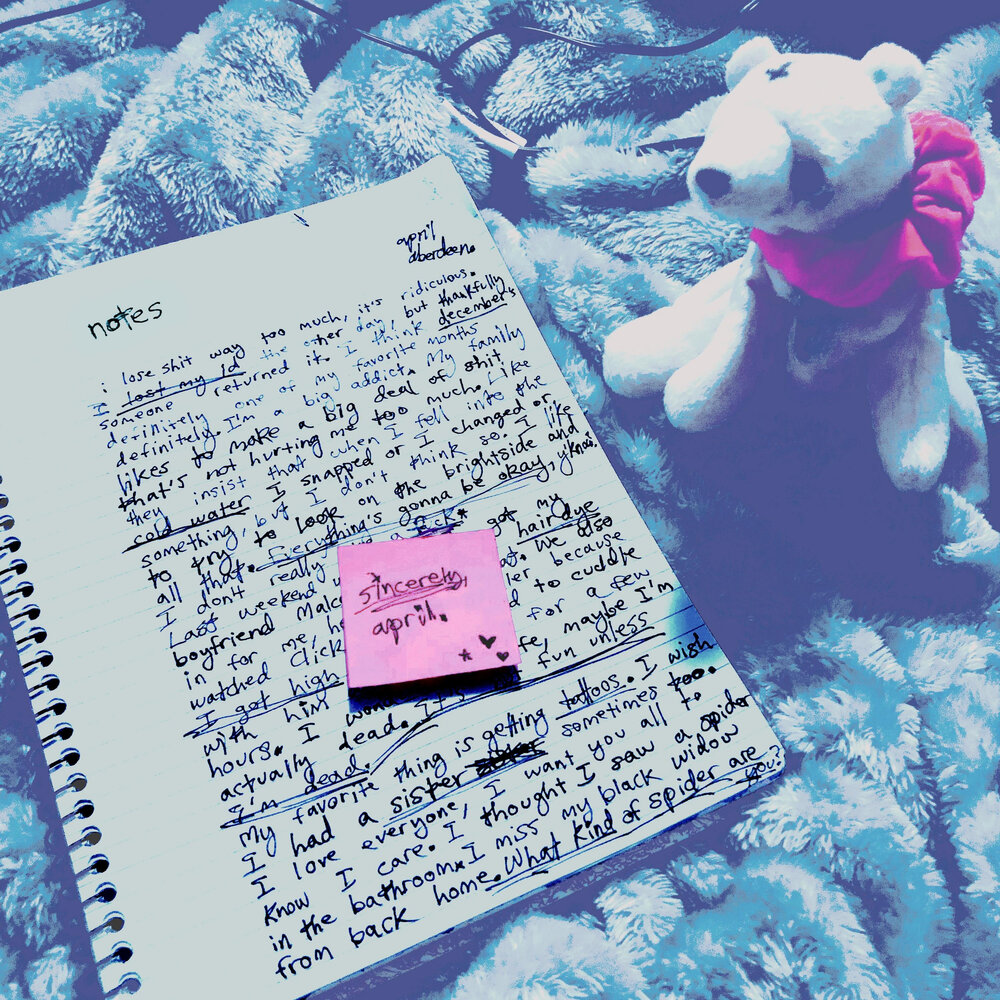 april
aberdeen.
notes
i lose shit way too much, it's ridiculous.
I lost my id the other day, but thankfully
someone returned it. I think december's
definitely one of my favorite months
definitely. I'm a big addict. My family
likes to make a big deal of shit
that's not hurting me too much. Like
they insist that when I fell into the
cold water I snapped or I changed or
something, but I don't think so. I like
to try to look on the brightside and
all that. Everything's gonna be okay, y'know.
I don't really a fuck*
Last weekend got my
boyfriend hairdye
in for me, We also
watched because
I got high to cuddle
with him for a few
hours. I maybe I'm
actually dead. It's fun unless
I'm dead.
my favorite thing is getting tattoos. I wish
I had a sister sometimes too.
I love everyone, I want you all to
know I care. I thought I saw a spider
in the bathroom. I miss my black widow
from back home. What kind of spider are you?
sincerely,
april.